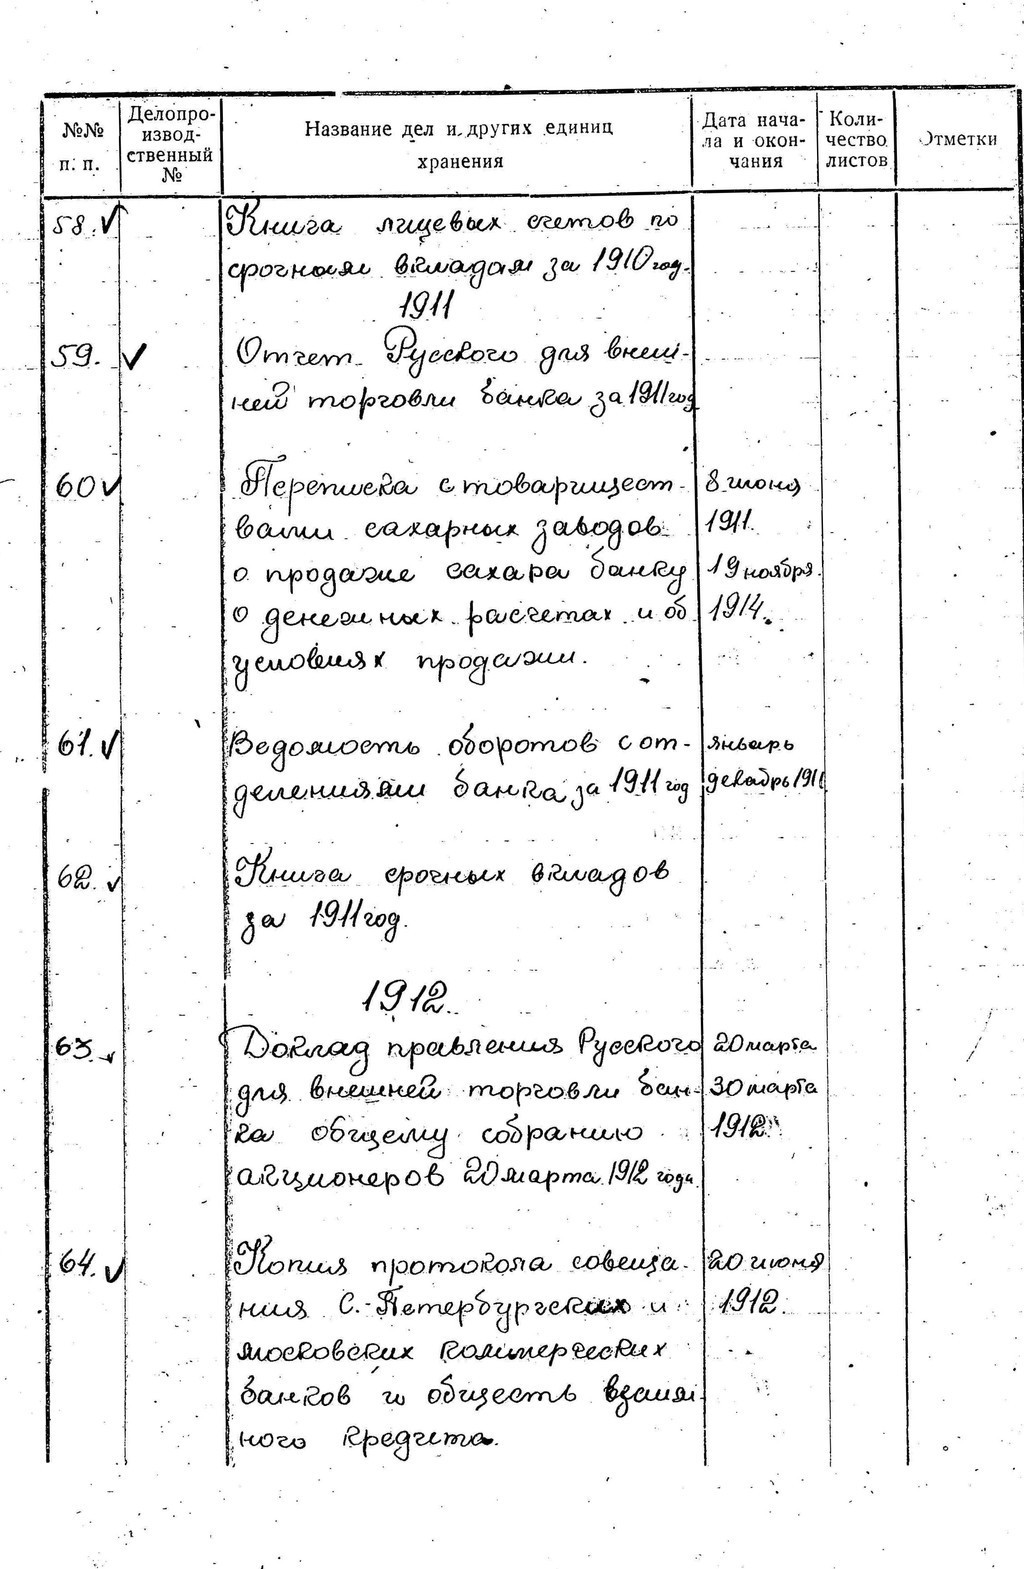 №№ п. п. Делопроизводственный № Название дел и других единиц хранения Дата начала и окончания Количество листов Отметки
58. ✓ Книга лицевых счетов по
срочным вкладам за 1910 год.
1911
59. ✓ Отчет Русского для внеш-
ней торговли банка за 1911 год
60 ✓ Переписка с товарищест- 8 июня
вами сахарных заводов 1911.
о продаже сахара банку 19 ноября
о денежных расчетах и об 1914.
условиях продажи.
61. ✓ Ведомость оборотов с от- январь
делениями банка за 1911 год декабрь 1911
62. ✓ Книга срочных вкладов
за 1911 год.
1912.
63. ✓ Доклад правления Русского 20 марта
для внешней торговли бан- 30 марта
ка общему собранию 1912
акционеров 20 марта 1912 года.
64. ✓ Копия протокола совеща- 20 июня
ния С.-Петербургских и 1912.
московских коммерческих
банков и обществ взаим-
ного кредита.